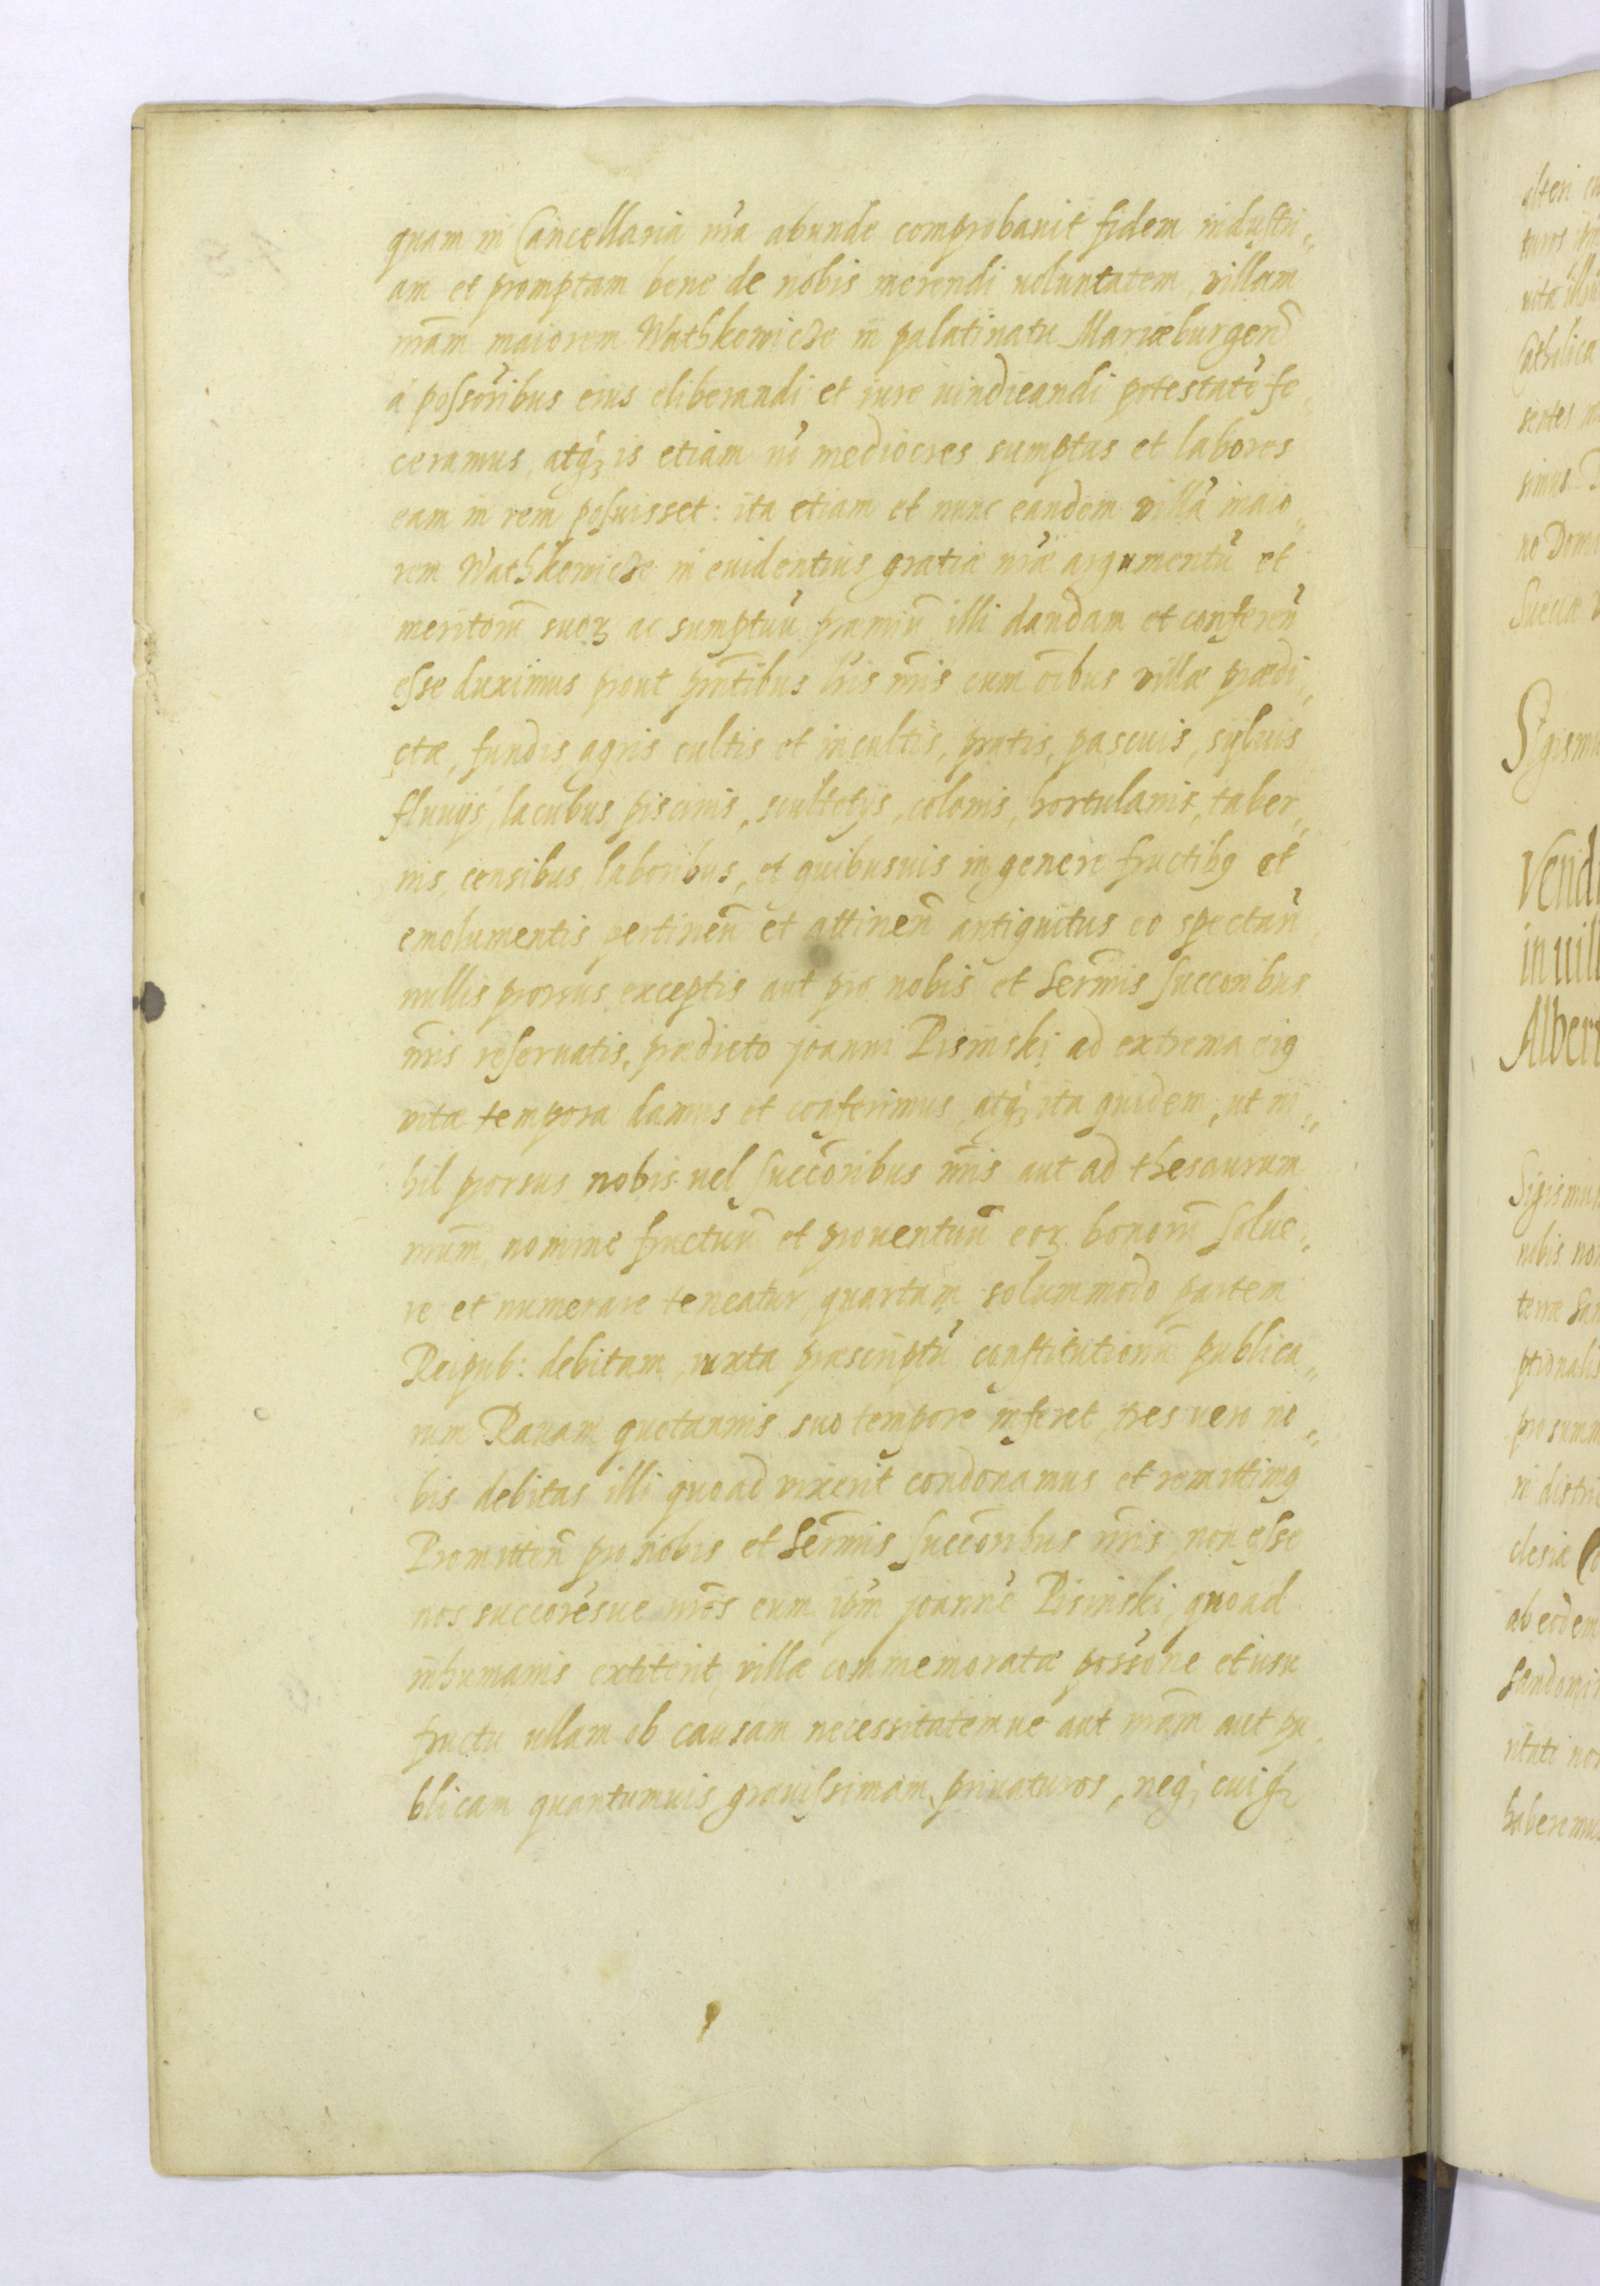 quam in Cancellaria nr̃a abunde comprobauit fidem industri„
am et promptam bene de nobis merendi uoluntatem, villam
nr̃am maiorem Wathkowicze in palatinatu Mariæburgen̄
á possoribus eius eliberandi et iure uindicandi potestatē fe„
ceramus, atq; is etiam nō mediocres sumptus et labores
eam in rem posuisset: ita etiam et nunc eandem villā maio„
rem Wathkowicze in euidentius gratiæ nr̃æ argumentū et
meritorū suoꝝ ac sumptuū præmiū illi dandam et conferen̄
esse duximus prout pn̄tibus lr̃is nr̃is cum oībus villæ prædi„
ctæ, fundis agris cultis et incultis, pratis, pascuis, syluis
fluuijs, lacubus piscinis, scultetijs, colonis, hortulanis, taber„
nis, censibus laboribus, et quibusuis in genere fructibꝯ et
emolumentis pertinen̄ et attinen̄ antiquitus eo spectan̄
nullis prorsus exceptis aut pro nobis et Serm̄is succoribus
nr̃is reseruatis, prædicto joanni Pisinski ad extrema eiꝯ
vitæ tempora damus et conferimus, atq; ita quidem, ut ni„
hil prorsus nobis uel succōribus nr̃is aut ad thesaurum
nr̃um nomine fructuū et prouentuū eoꝝ bonorū solue„
re et numerare teneatur, quartam solummodo partem
Reipub: debitam, iuxta præscriptū constitutionū publica„
rum Rauam quotannis suo tempore inferet, tres uero no„
bis debitas illi quoad vixerit condonamus et remittimꝯ
Promitten̄ pro nobis et Serm̄is succōribus nr̃is non esse
nos succoresue nr̃os eum ipm̄ joannē Pisinski, quoad
in humanis extiterit, villæ commemoratæ possone et usu
fructu ullam ob causam necessitatemue aut nr̃am aut pu„
blicam quantumuis grauissimam priuaturos, neq; cuiq̃